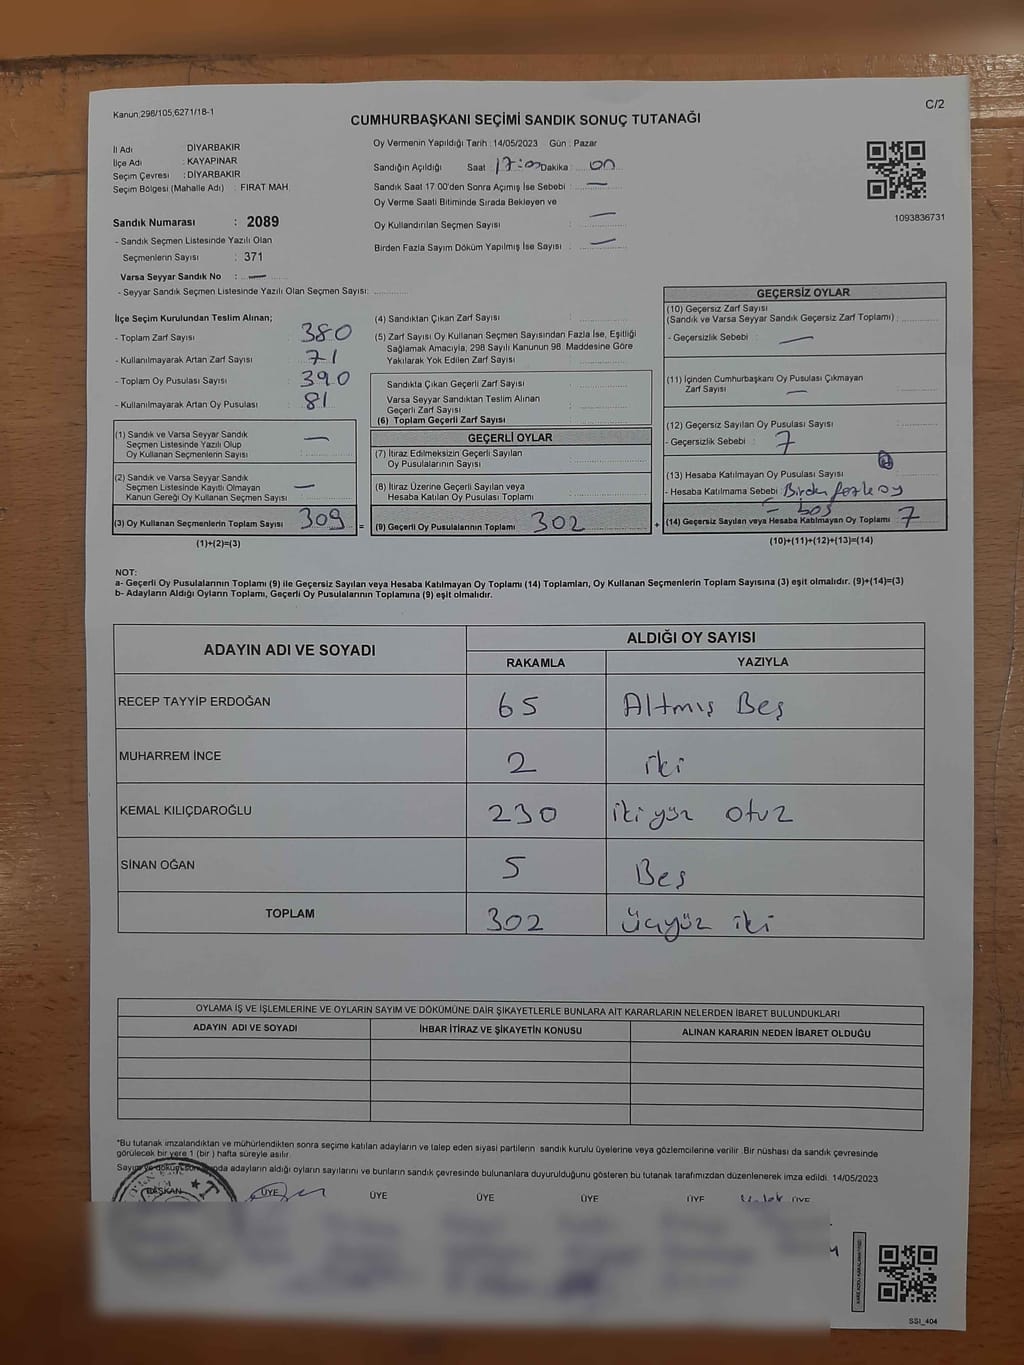 Kanun;298/105,6271/18-1
C/2
CUMHURBAŞKANI SEÇİMİ SANDIK SONUÇ TUTANAĞI
İl Adı DİYARBAKIR
İlçe Adı : KAYAPINAR
Seçim Çevresi : DİYARBAKIR
Seçim Bölgesi (Mahalle Adı) : FIRAT MAH.
Sandık Numarası : 2089
- Sandık Seçmen Listesinde Yazılı Olan
Seçmenlerin Sayısı : 371
Varsa Seyyar Sandık No : —
- Seyyar Sandık Seçmen Listesinde Yazılı Olan Seçmen Sayısı:
Oy Vermenin Yapıldığı Tarih : 14/05/2023 Gün : Pazar
Sandığın Açıldığı Saat 17:00 Dakika : on
Sandık Saat 17.00'den Sonra Açımış İse Sebebi : —
Oy Verme Saati Bitiminde Sırada Bekleyen ve
Oy Kullandırılan Seçmen Sayısı : —
Birden Fazla Sayım Döküm Yapılmış İse Sayısı : —
1093836731
İlçe Seçim Kurulundan Teslim Alınan;
- Toplam Zarf Sayısı : 380
- Kullanılmayarak Artan Zarf Sayısı : 71
- Toplam Oy Pusulası Sayısı : 390
- Kullanılmayarak Artan Oy Pusulası : 81
(1) Sandık ve Varsa Seyyar Sandık
Seçmen Listesinde Yazılı Olup
Oy Kullanan Seçmenlerin Sayısı : —
(2) Sandık ve Varsa Seyyar Sandık
Seçmen Listesinde Kayıtlı Olmayan
Kanun Gereği Oy Kullanan Seçmen Sayısı : —
(3) Oy Kullanan Seçmenlerin Toplam Sayısı 309 =
(1)+(2)=(3)
(4) Sandıktan Çıkan Zarf Sayısı :
(5) Zarf Sayısı Oy Kullanan Seçmen Sayısından Fazla İse, Eşitliği
Sağlamak Amacıyla, 298 Sayılı Kanunun 98. Maddesine Göre
Yakılarak Yok Edilen Zarf Sayısı :
Sandıkta Çıkan Geçerli Zarf Sayısı :
Varsa Seyyar Sandıktan Teslim Alınan
Geçerli Zarf Sayısı :
(6) Toplam Geçerli Zarf Sayısı :
GEÇERLİ OYLAR
(7) İtiraz Edilmeksizin Geçerli Sayılan
Oy Pusulalarının Sayısı :
(8) İtiraz Üzerine Geçerli Sayılan veya
Hesaba Katılan Oy Pusulası Toplamı :
(9) Geçerli Oy Pusulalarının Toplamı : 302 +
GEÇERSİZ OYLAR
(10) Geçersiz Zarf Sayısı
(Sandık ve Varsa Seyyar Sandık Geçersiz Zarf Toplamı) :
- Geçersizlik Sebebi : —
(11) İçinden Cumhurbaşkanı Oy Pusulası Çıkmayan
Zarf Sayısı : —
(12) Geçersiz Sayılan Oy Pusulası Sayısı :
- Geçersizlik Sebebi : 7
(13) Hesaba Katılmayan Oy Pusulası Sayısı :
- Hesaba Katılmama Sebebi : Birden fazla oy
- boş
(14) Geçersiz Sayılan veya Hesaba Katılmayan Oy Toplamı 7
(10)+(11)+(12)+(13)=(14)
NOT:
a- Geçerli Oy Pusulalarının Toplamı (9) ile Geçersiz Sayılan veya Hesaba Katılmayan Oy Toplamı (14) Toplamları, Oy Kullanan Seçmenlerin Toplam Sayısına (3) eşit olmalıdır. (9)+(14)=(3)
b- Adayların Aldığı Oyların Toplamı, Geçerli Oy Pusulalarının Toplamına (9) eşit olmalıdır.
ADAYIN ADI VE SOYADI ALDIĞI OY SAYISI
RAKAMLA YAZIYLA
RECEP TAYYİP ERDOĞAN 65 Altmış Beş
MUHARREM İNCE 2 iki
KEMAL KILIÇDAROĞLU 230 iki yüz otuz
SİNAN OĞAN 5 Beş
TOPLAM 302 üçyüz iki
OYLAMA İŞ VE İŞLEMLERİNE VE OYLARIN SAYIM VE DÖKÜMÜNE DAİR ŞİKAYETLERLE BUNLARA AİT KARARLARIN NELERDEN İBARET BULUNDUKLARI
ADAYIN ADI VE SOYADI İHBAR İTİRAZ VE ŞİKAYETİN KONUSU ALINAN KARARIN NEDEN İBARET OLDUĞU
*Bu tutanak imzalandıktan ve mühürlendikten sonra seçime katılan adayların ve talep eden siyasi partilerin sandık kurulu üyelerine veya gözlemcilerine verilir. Bir nüshası da sandık çevresinde
görülecek bir yere 1 (bir ) hafta süreyle asılır.
Sayım ve döküm sonunda adayların aldığı oyların sayılarını ve bunların sandık çevresinde bulunanlara duyurulduğunu gösteren bu tutanak tarafımızdan düzenlenerek imza edildi. 14/05/2023
BAŞKAN ÜYE ÜYE ÜYE ÜYE ÜYE ÜYE
SSI_404